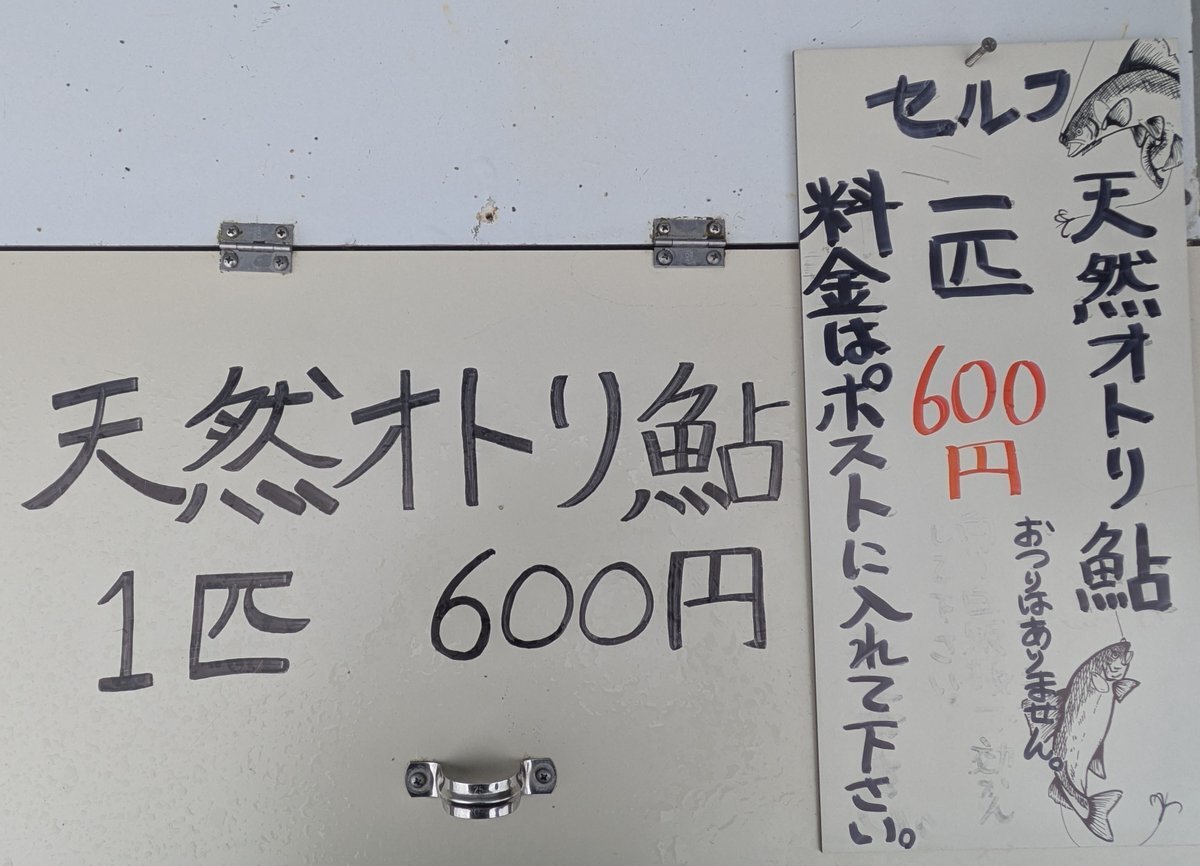 天然オトリ鮎
1匹 600円
セルフ
天然オトリ鮎
一匹 600円
おつりはありません。
料金はポストに入れて下さい。